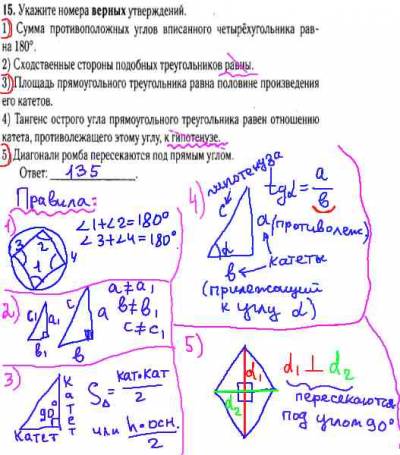 15. Укажите номера верных утверждений.
1) Сумма противоположных углов вписанного четырёхугольника рав-
на 180°.
2) Сходственные стороны подобных треугольников равны.
3) Площадь прямоугольного треугольника равна половине произведения
его катетов.
4) Тангенс острого угла прямоугольного треугольника равен отношению
катета, противолежащего этому углу, к гипотенузе.
5) Диагонали ромба пересекаются под прямым углом.
Ответ: 135.
Правила:
1)
∠1+∠2=180°
∠3+∠4=180°
3 2
1 4
2)
c₁ a₁ b₁
c a b
a≠a₁
b≠b₁
c≠c₁
3)
90°
Катет
Катет
S△ = кат·кат/2
или h·осн./2
4)
гипотенуза
c
α
tgα = a/b
a (противолеж)
катеты
b
(прилежащий
к углу α)
5)
d₁
d₂
d₁ ⊥ d₂
пересекаются
под углом 90°